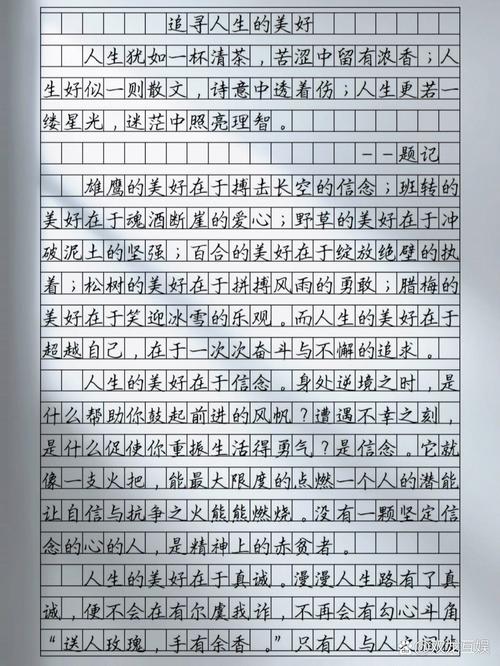 追寻人生的美好
人生犹如一杯清茶，苦涩中留有浓香；人
生好似一则散文，诗意中透着伤；人生更若一
缕星光，迷茫中照亮理智。
--题记
雄鹰的美好在于搏击长空的信念；班转的
美好在于魂酒断崖的爱心；野草的美好在于冲
破泥土的坚强；百合的美好在于绽放绝壁的执
着；松树的美好在于拼搏风雨的勇敢；腊梅的
美好在于笑迎冰雪的乐观。而人生的美好在于
超越自己，在于一次次奋斗与不懈的追求。
人生的美好在于信念。身处逆境之时，是
什么帮助你鼓起前进的风帆？遭遇不幸之刻，
是什么促使你重振生活得勇气？是信念。它就
像一支火把，能最大限度的点燃一个人的潜能
让自信与抗争之火熊熊燃烧。没有一颗坚定信
念的心的人，是精神上的赤贫者。
人生的美好在于真诚。漫漫人生路有了真
诚，便不会在有尔虞我诈，不再会有勾心斗角
“送人玫瑰，手有余香。”只有人与人
互娱